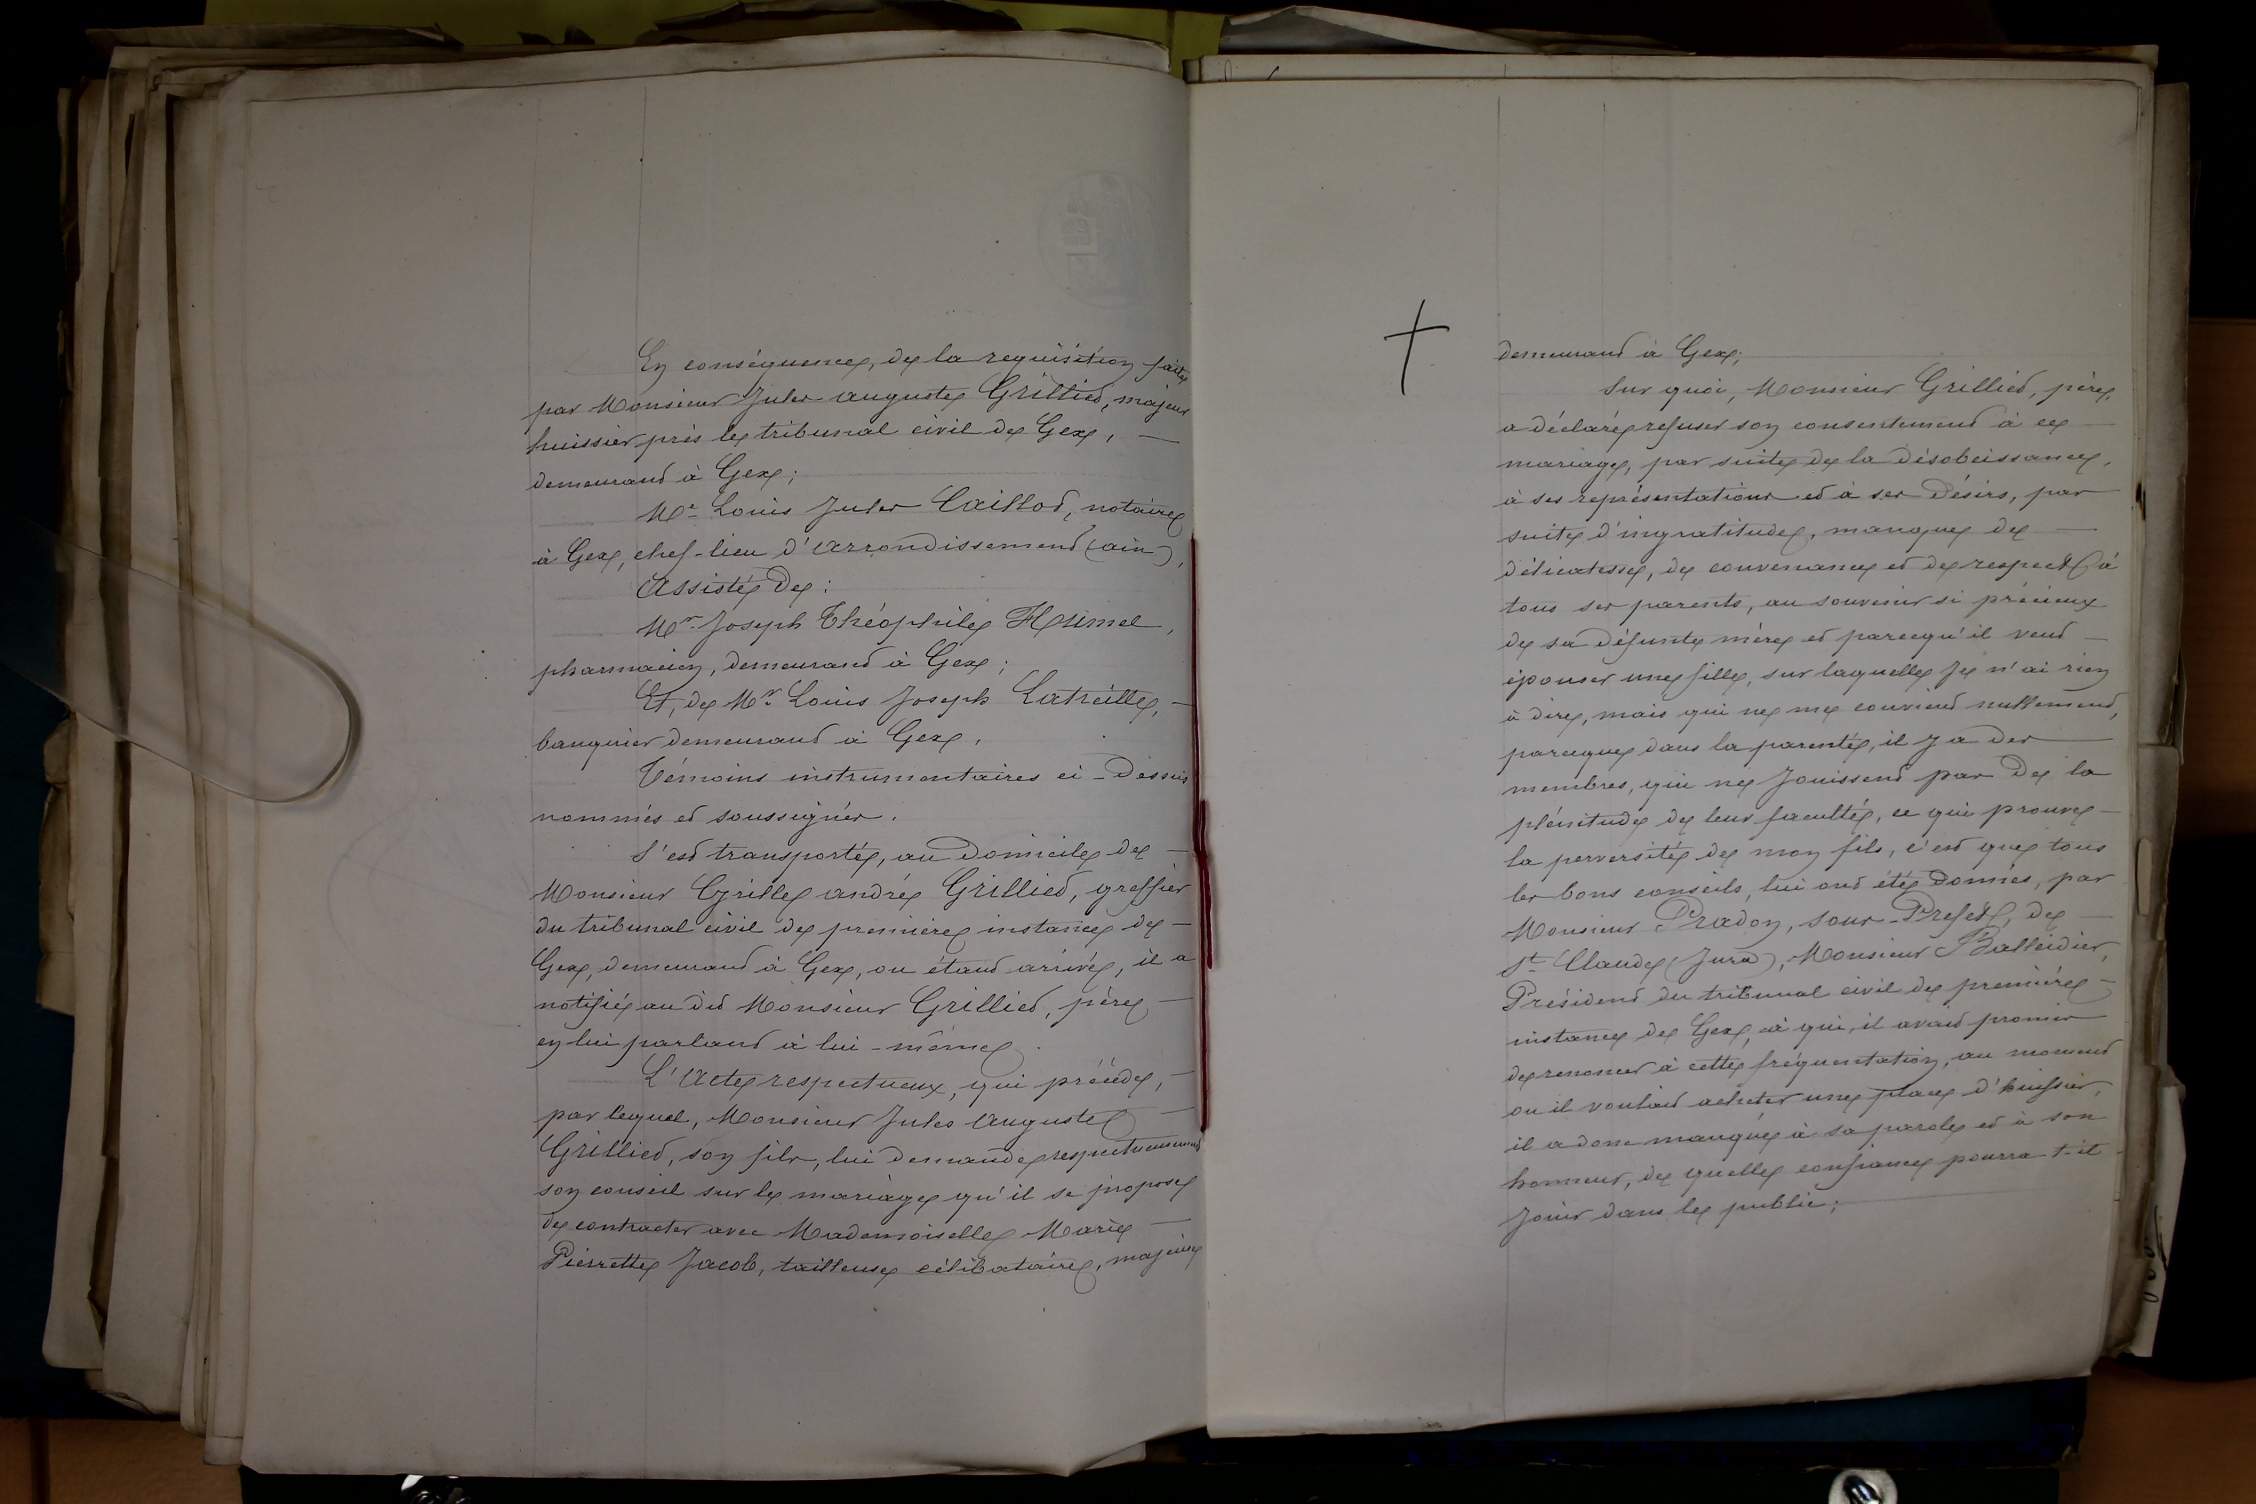 En conséquence, de la requisition faite
par Monsieur Jules Auguste Grilliet, majeur
huissier près le tribunal civil de Gex, —
demeurant à Gex;
Me Louis Jules Caillot, notaire
à Gex, chef-lieu d'arrondissement (ain),
Assisté de:
Mr. Joseph Théophile Humel,
pharmacien, demeurant à Gex;
Et, de Mr. Louis Joseph Latreille, —
banquier demeurant à Gex.
Témoins instrumentaires ci-dessus
nommés et soussignés.
S'est transporté, au domicile de —
Monsieur Cyrille andré Grilliet, greffier
du tribunal civil de première instance de —
Gex, demeurant à Gex, ou étant arrivé, il a
notifié au dit Monsieur Grilliet, père —
en lui parlant à lui-même.
L'Acte respectueux, qui précède, —
par lequel, Monsieur Jules Auguste —
Grilliet, son fils, lui demande respectueusement
son conseil sur le mariage qu'il se propose
de contracter avec Mademoiselle Marie —
Pierrette Jacob, tailleuse célibataire, majeure
demeurant à Gex;
Sur quoi, Monsieur Grilliet, père,
a déclaré refuser son consentement à ce —
mariage, par suite de la désobéissance,
à ses représentations et à ses désirs, par
suite d'ingratitude, manque de —
délicatesse, de convenance et de respect à
tous ses parents, au souvenir si précieux
de sa défunte mère et parcequ'il veut —
épouser une fille, sur laquelle je n'ai rien
à dire, mais qui ne me convient nullement,
parceque dans la parenté, il y a des —
membres, qui ne jouissent pas de la
plénitude de leur faculté, ce qui prouve —
la perversité de mon fils, c'est que tous
les bons conseils, lui ont été donnés, par
Monsieur Pradon, sous-Prefet, de —
St. Claude (Jura), Monsieur Balleidier,
Président du tribunal civil de première —
instance de Gex, à qui, il avait promis
de renoncer à cette fréquentation, au moment
ou il voulait acheter une place d'huissier,
il a donc manqué à sa parole et à son
honneur, de quelle confiance pourra-t-il
jouir dans le public;